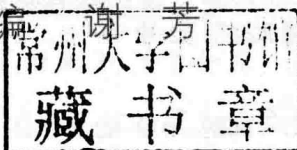 编 谢 芳
常州大学图书馆
藏 书 章